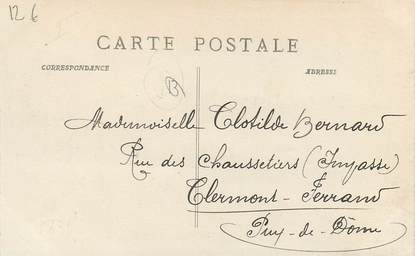 12 €
CARTE POSTALE
CORRESPONDANCE
ADRESSE
B
Mademoiselle Clotilde Bernard
Rue des Chaussetiers (Impasse)
Clermont-Ferrand
Puy-de-Dôme